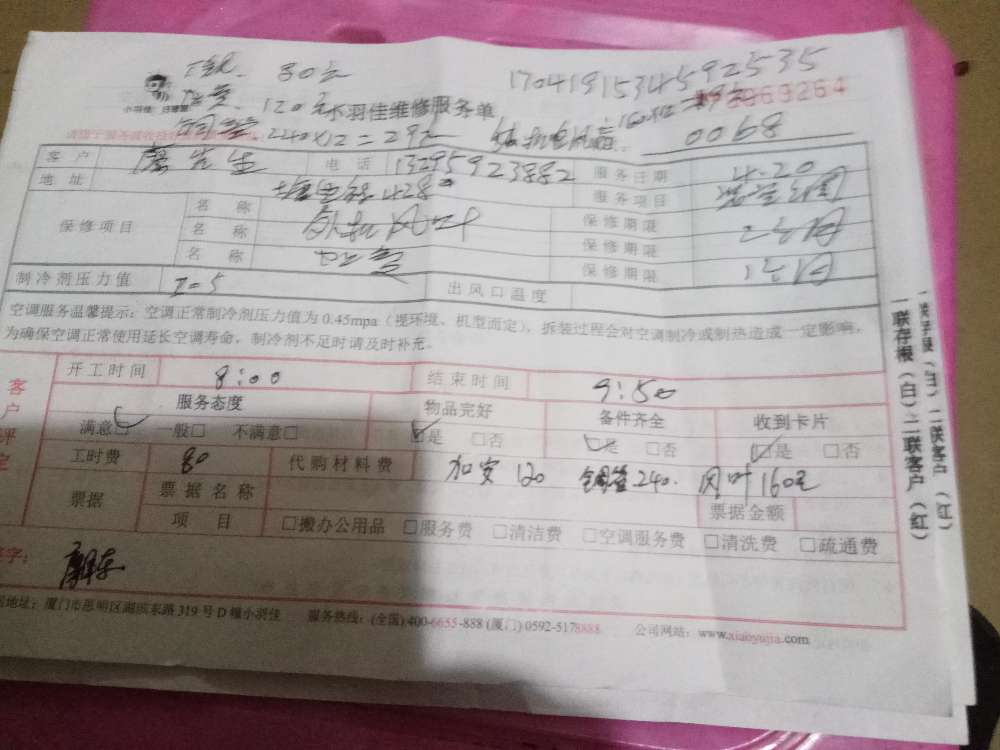 80元
1704191534592535
小羽佳 120元 小羽佳维修服务单 69264
铜管 240×12=292 0068
客户 先生 电话 13295923882 服务日期 4.20
地址 428# 服务项目
保修项目 名称 外机风叶 保修期限 2个月
名称 加氟 保修期限
名称 保修期限 1个月
制冷剂压力值 出风口温度
空调服务温馨提示:空调正常制冷剂压力值为0.45mpa(视环境、机型而定),拆装过程会对空调制冷或制热造成一定影响,
为确保空调正常使用延长空调寿命,制冷剂不足时请及时补充。
客户评定
开工时间 8:00 结束时间 9:50
服务态度 物品完好 备件齐全 收到卡片
满意□ 一般□ 不满意□ □是 □否 □是 □否 □是 □否
工时费 80 代购材料费 加安120 铜管240. 风叶160元
票据 票据名称 票据金额
项目 □搬办公用品 □服务费 □清洁费 □空调服务费 □清洗费 □疏通费
签字:
地址:厦门市思明区湖滨东路319号D幢小羽佳 服务热线:(全国)400-6655-888 (厦门)0592-5178888 公司网站:www.xiaoyujia.com
一联存根(白)二联客户(红)
一联存根(白)二联客户(红)